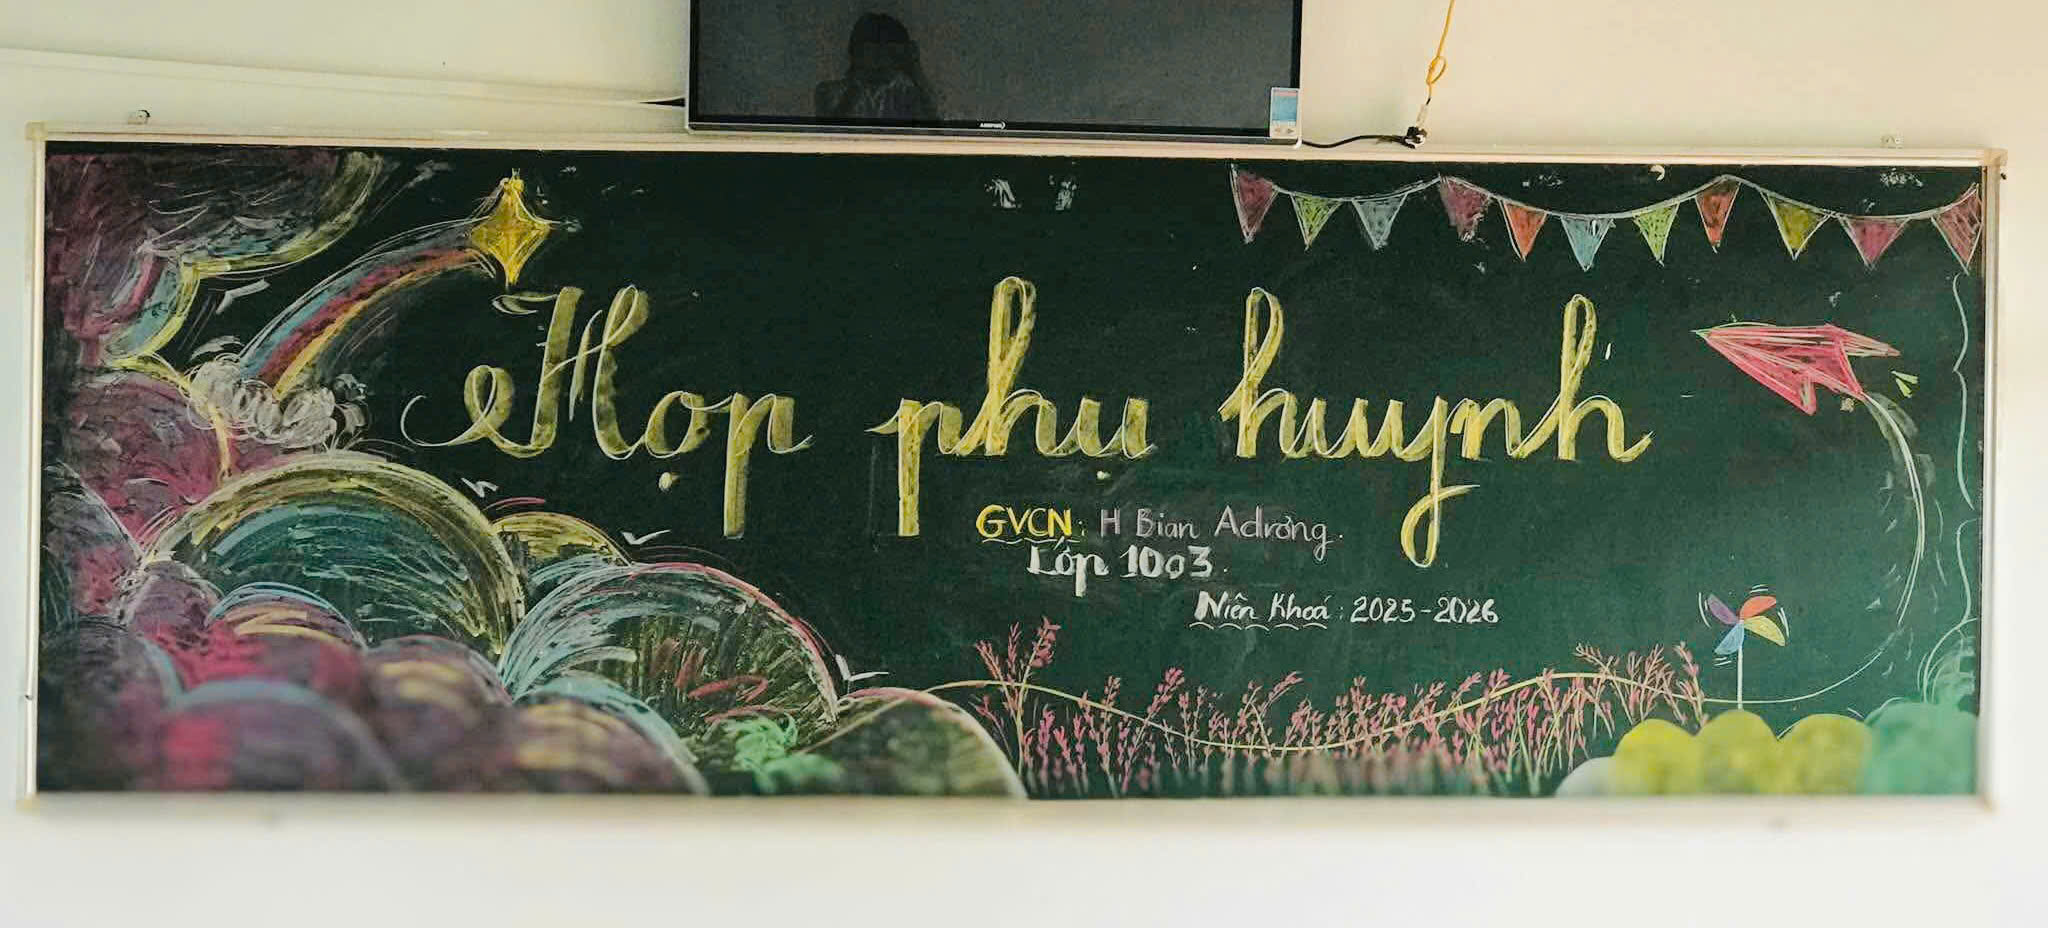 Họp phụ huynh
GVCN: H Bian Adrơng.
Lớp 10a3.
Niên Khoá: 2025-2026